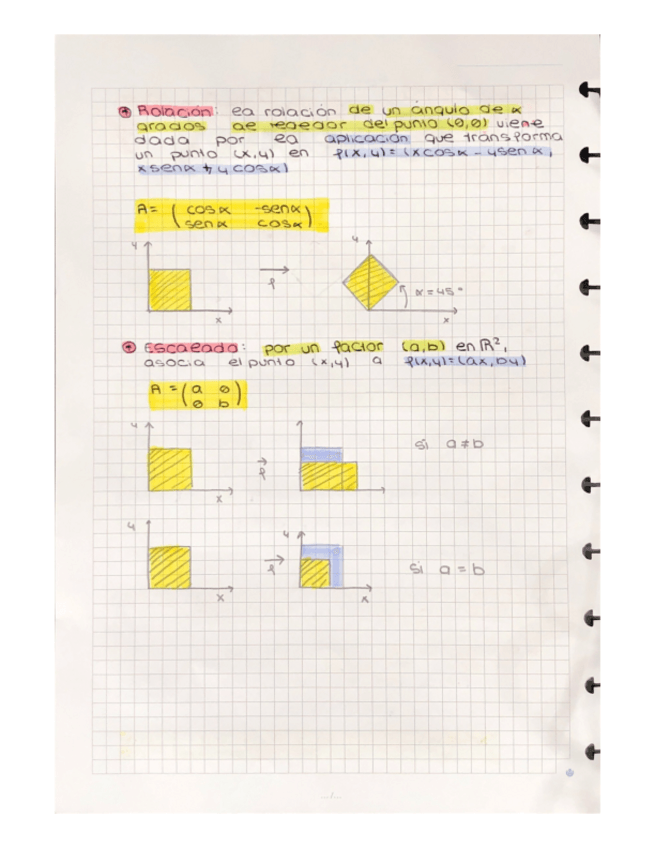 Rotación: la rotación de un ángulo de α
grados de rededor del punto (0,0) viene
dada por la aplicación que transforma
un punto (x,y) en f(x,y)=(x cosα - y sen α,
x senα + y cosα)
A= ( cosα -senα
senα cosα )
y
x
f
y
α=45°
x
Escalado: por un factor (a,b) en ℝ²,
asocia el punto (x,y) a f(x,y)=(ax,by)
A = ( a 0
0 b )
y
x
f
si a≠b
y
x
f
y
x
si a = b